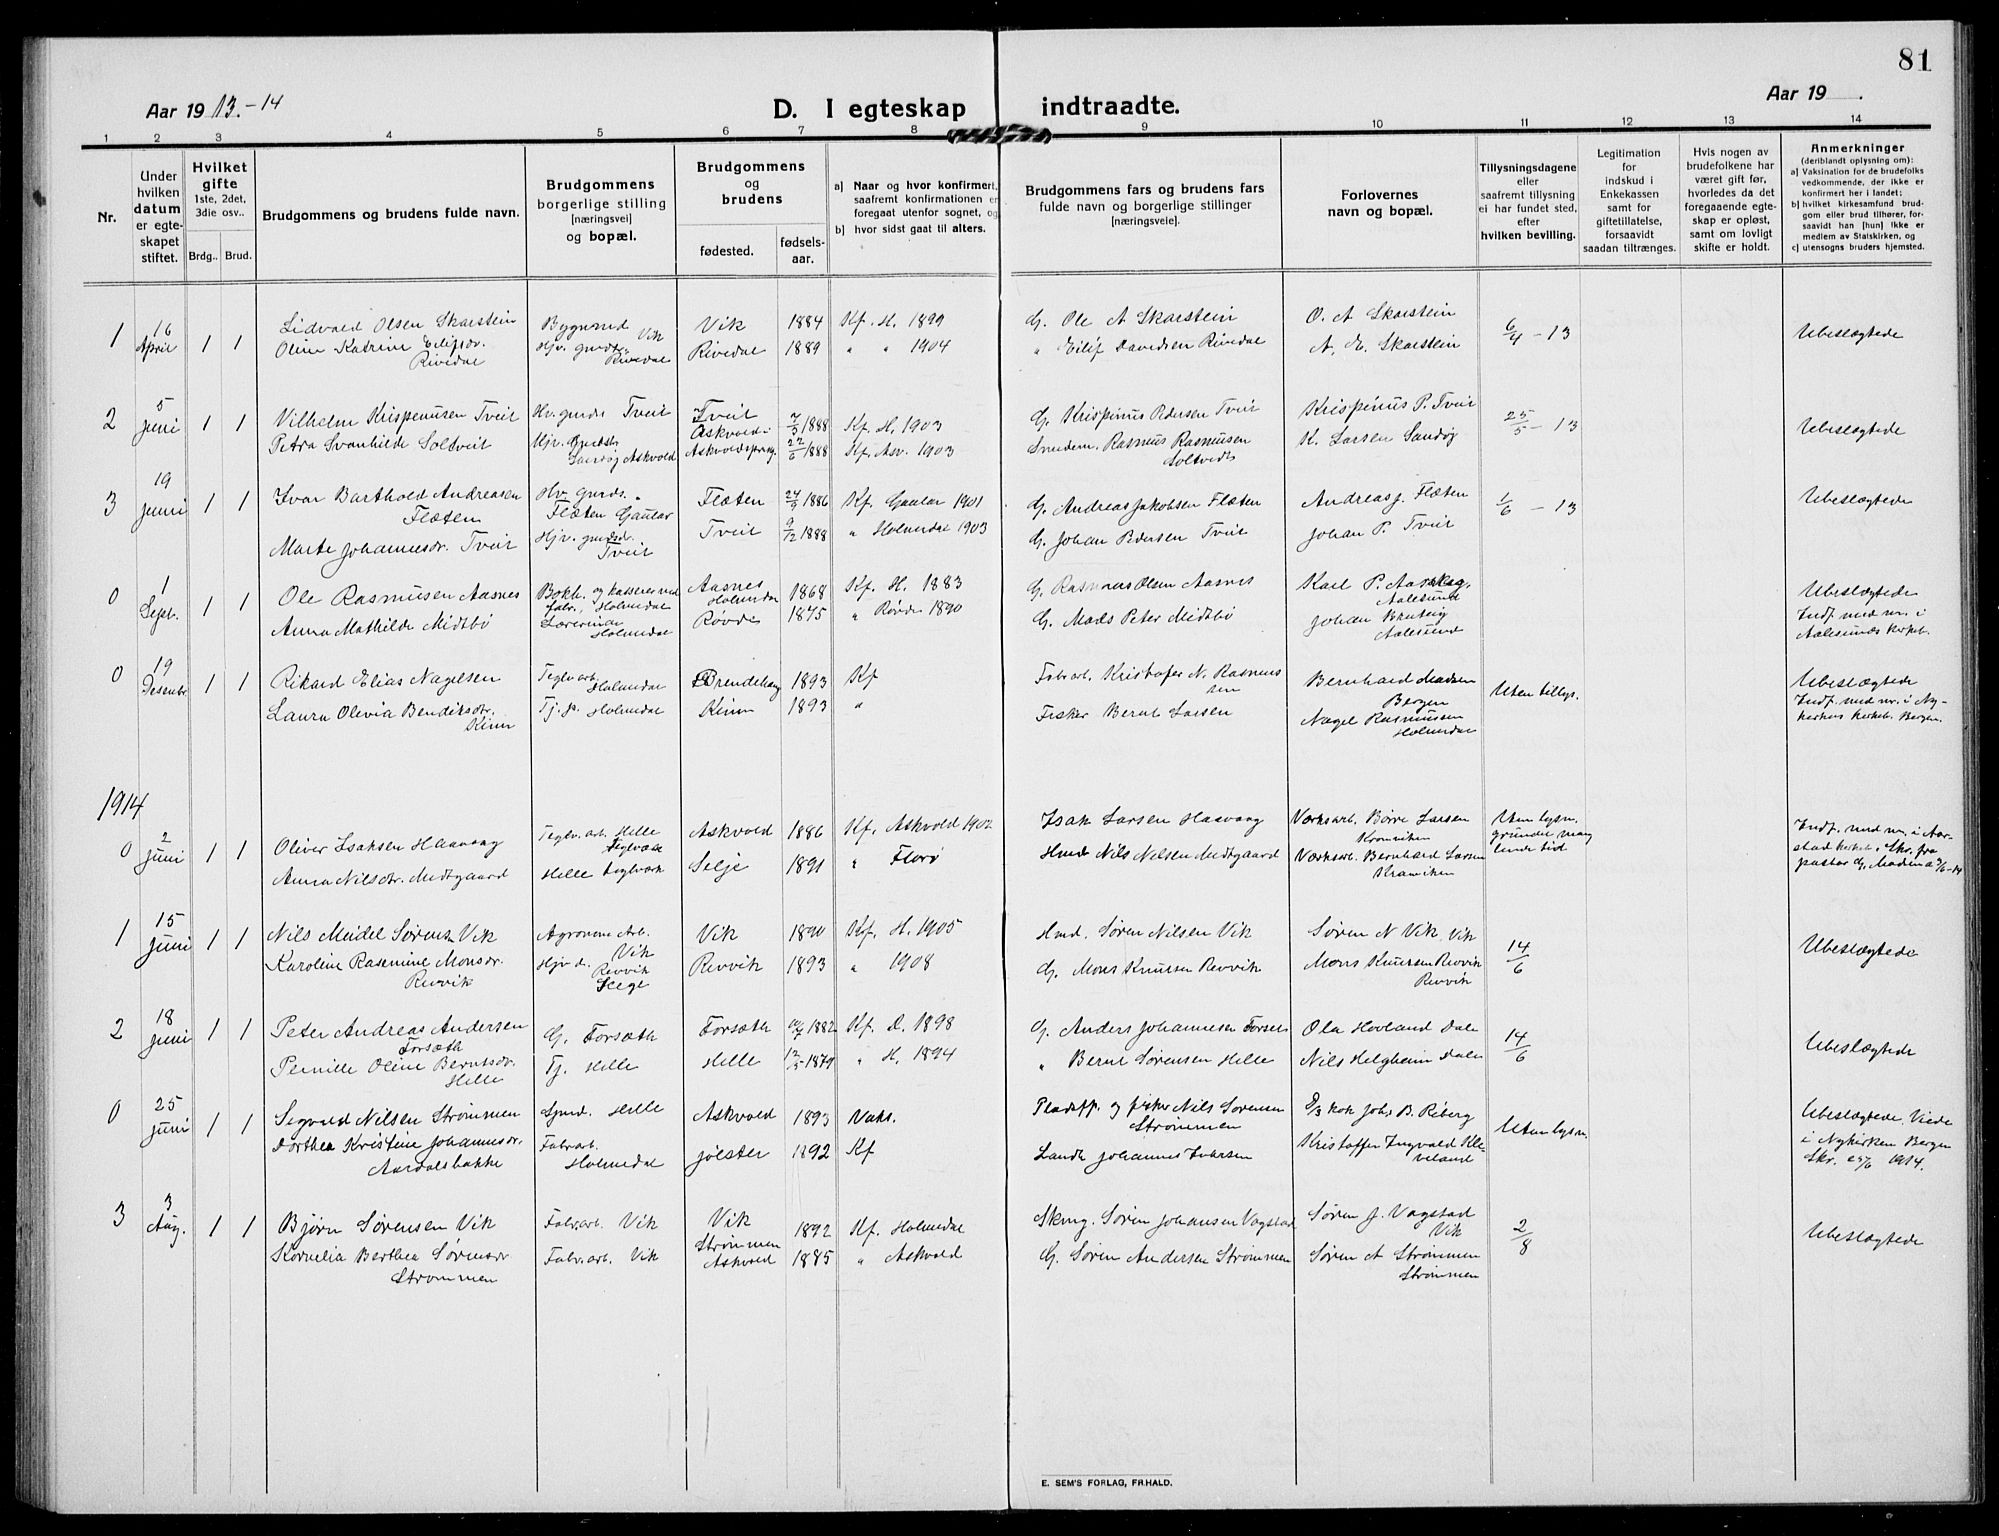 81
Aar 1913.-14
D. I egteskap indtraadte.
Aar 19 .
1 2 3 4 5 6 7 8 9 10 11 12 13 14
Nr.
Under hvilken datum er egteskapet stiftet.
Hvilket gifte 1ste, 2det, 3die osv..
Brdg.. Brud.
Brudgommens og brudens fulde navn.
Brudgommens borgerlige stilling [næringsvei] og bopæl.
Brudgommens og brudens
fødested. fødselsaar.
a) Naar og hvor konfirmert, saafremt konfirmationen er foregaat utenfor sognet, og
b) hvor sidst gaat til alters.
Brudgommens fars og brudens fars fulde navn og borgerlige stillinger [næringsveie].
Forlovernes navn og bopæl.
Tillysningsdagene eller saafremt tillysning ei har fundet sted, efter hvilken bevilling.
Legitimation for indskud i Enkekassen samt for giftetillatelse, forsaavidt saadan tiltrænges.
Hvis nogen av brudefolkene har været gift før, hvorledes da det foregaaende egteskap er opløst, samt om lovligt skifte er holdt.
Anmerkninger (deriblandt oplysning om):
a) Vaksination for de brudefolks vedkommende, der ikke er konfirmert her i landet;
b) hvilket kirkesamfund brudgom eller brud tilhører, forsaavidt han [hun] ikke er medlem av Statskirken, og
c) utensogns bruders hjemsted.
1 16 April 1 1 Lidvald Olsen Skarstein Bygmand Vik Vik 1884 Kf. H. 1899 G. Ole A Skarstein O. A Skarstein 6/4 - 13 Ubeslægtede
Oline Katrine Eilifsdr. Rivedal Hjv. gmds. Rivedal Rivedal 1889 " " 1904 " Eilif Davidsen Rivedal A. E. Skarstein
2 5 Juni 1 1 Vilhelm Krispinusen Tveit Hv. gmds Tveit Tveit 7/3 1888 Kf. H. 1903 G. Krispinus Pedersen Tveit Krispinus P. Tveit 25/5 - 13 Ubeslægtede
Petra Svanhilde Soltveit Hjv. Gmdsd. Sandøy Askvold Askvold 22/6 1888 Kf. Asv. 1903 Smedem. Rasmus Rasmusen Soltvedt K. Larsen Sandøy
3 19 Juni 1 1 Ivar Barthold Andreasen Flæten Hv. gmds. Flæten Gaular Flæten 24/9 1886 Kf. Gaular 1901 G. Andreas Jakobsen Flæten Andreas J. Flæten 1/6 - 13 Ubeslægtede
Marte Johannesdr. Tveit Hjv. gmdsd. Tveit Tveit 9/12 1888 " Holmedal 1903 G. Johan Pedersen Tveit Johan P. Tveit
0 1 Sept. 1 1 Ole Rasmusen Aasnes Bokh. og kasserer ved fabr. Holmedal Aasnes Holmedal 1868 Kf. H. 1883 G. Rasmus Olsen Aasnes Karl P. Aalesund Ubeslægtede
Anna Mathilde Midtbø Lærerinde Holmedal Røvde 1875 " Røvde 1890 G. Mads Peter Midtbø Johan Aalesund Indf. med nr. i Aalesunds kirkeb.
0 19 Desember 1 1 Rikard Elias Nagelsen Teglv.arb. Holmedal Brendehaug 1893 Kf Fabr.arb. Kristofer N. Rasmussen Bernhard Madsen Bergen Uten tillys. Ubeslægtede
Laura Olivia Bendiksdr. Kinn Tj. p. Holmedal Kinn 1893 " Fisker Bernt Larsen Nagel Rasmussen Holmedal Indf. med nr. i Nykirkens kirkeb. Bergen.
1914
0 2 Juni 1 1 Oliver Isaksen Haavaag Teglv. arb. Helle Teglverk Askvold 1886 Kf. Askvold 1902 Isak Larsen Haavaag Værksarb. Børre Larsen Uten lysn. grundet manglende tid Indf. med nr. i Aarstad kirkeb. Skr. fra pastor
Anna Nilsdtr. Midtgaard Helle Teglverk Selje 1891 " Florø Hmd. Nils Nilsen Midtgaard Værksarb. Bernhard Larsen
1 15 Juni 1 1 Nils Meidel Sørens. Vik Agronom Arb. Vik Vik 1890 Kf. H. 1905 Hmd. Søren Nilsen Vik Søren N Vik Vik 14/6 Ubeslægtede
Karoline Rasmine Monsdr. Revvik Hjv d. Revvik Revvik 1893 " 1908 G. Mons Knutsen Revvik Mons Knutsen Revvik Revvik
2 18 Juni 1 1 Peter Andreas Andersen Forsæth G. Forsæth Forsæth 1882 Kf. D. 1898 G. Anders Johannesen Forseth Ola Hovland Dale 14/6 Ubeslægtede
Pernille Oline Berntsdr. Helle Tj. Helle Helle 1879 " H. 1894 " Bernt Sørensen Helle Nils Helgheim Dale
0 25 Juni 1 1 Segvald Nilsen Strømmen Helle Askvold 1893 Vaks. Pladsfp. og fisker Nils Sørensen Strømmen D/3 kok Johs B. Riberg Uten lysn. Ubeslægtede. Viede i Nykirken Bergen
Dorthea Kristine Johannesdr. Aardalsbakke Fabr.arb. Holmedal Jølster 1892 Kf Landh. Johannes Ivarsen Kristoffer Ingvald Kleiveland Skr. 25/6 1914.
3 3 Aug. 1 1 Bjørn Sørensen Vik Fabr.arb. Vik Vik 1892 Kf. Holmedal Skrog. Søren Johansen Vagstad Søren J. Vagstad Vik 2/8 Ubeslægtede
Kornelia Berthea Sørensdr Strømmen Fabr.arb. Vik Strømmen Askvold 1885 " Askvold G. Søren Andersen Strømmen Søren A Strømmen Strømmen
E. SEM'S FORLAG, FR.HALD.